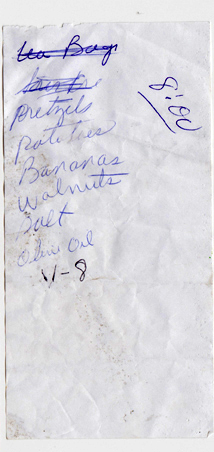 Tea Bags
Pretzels
8:00
Potatoes
Bananas
Walnuts
Salt
Olive Oil
V-8